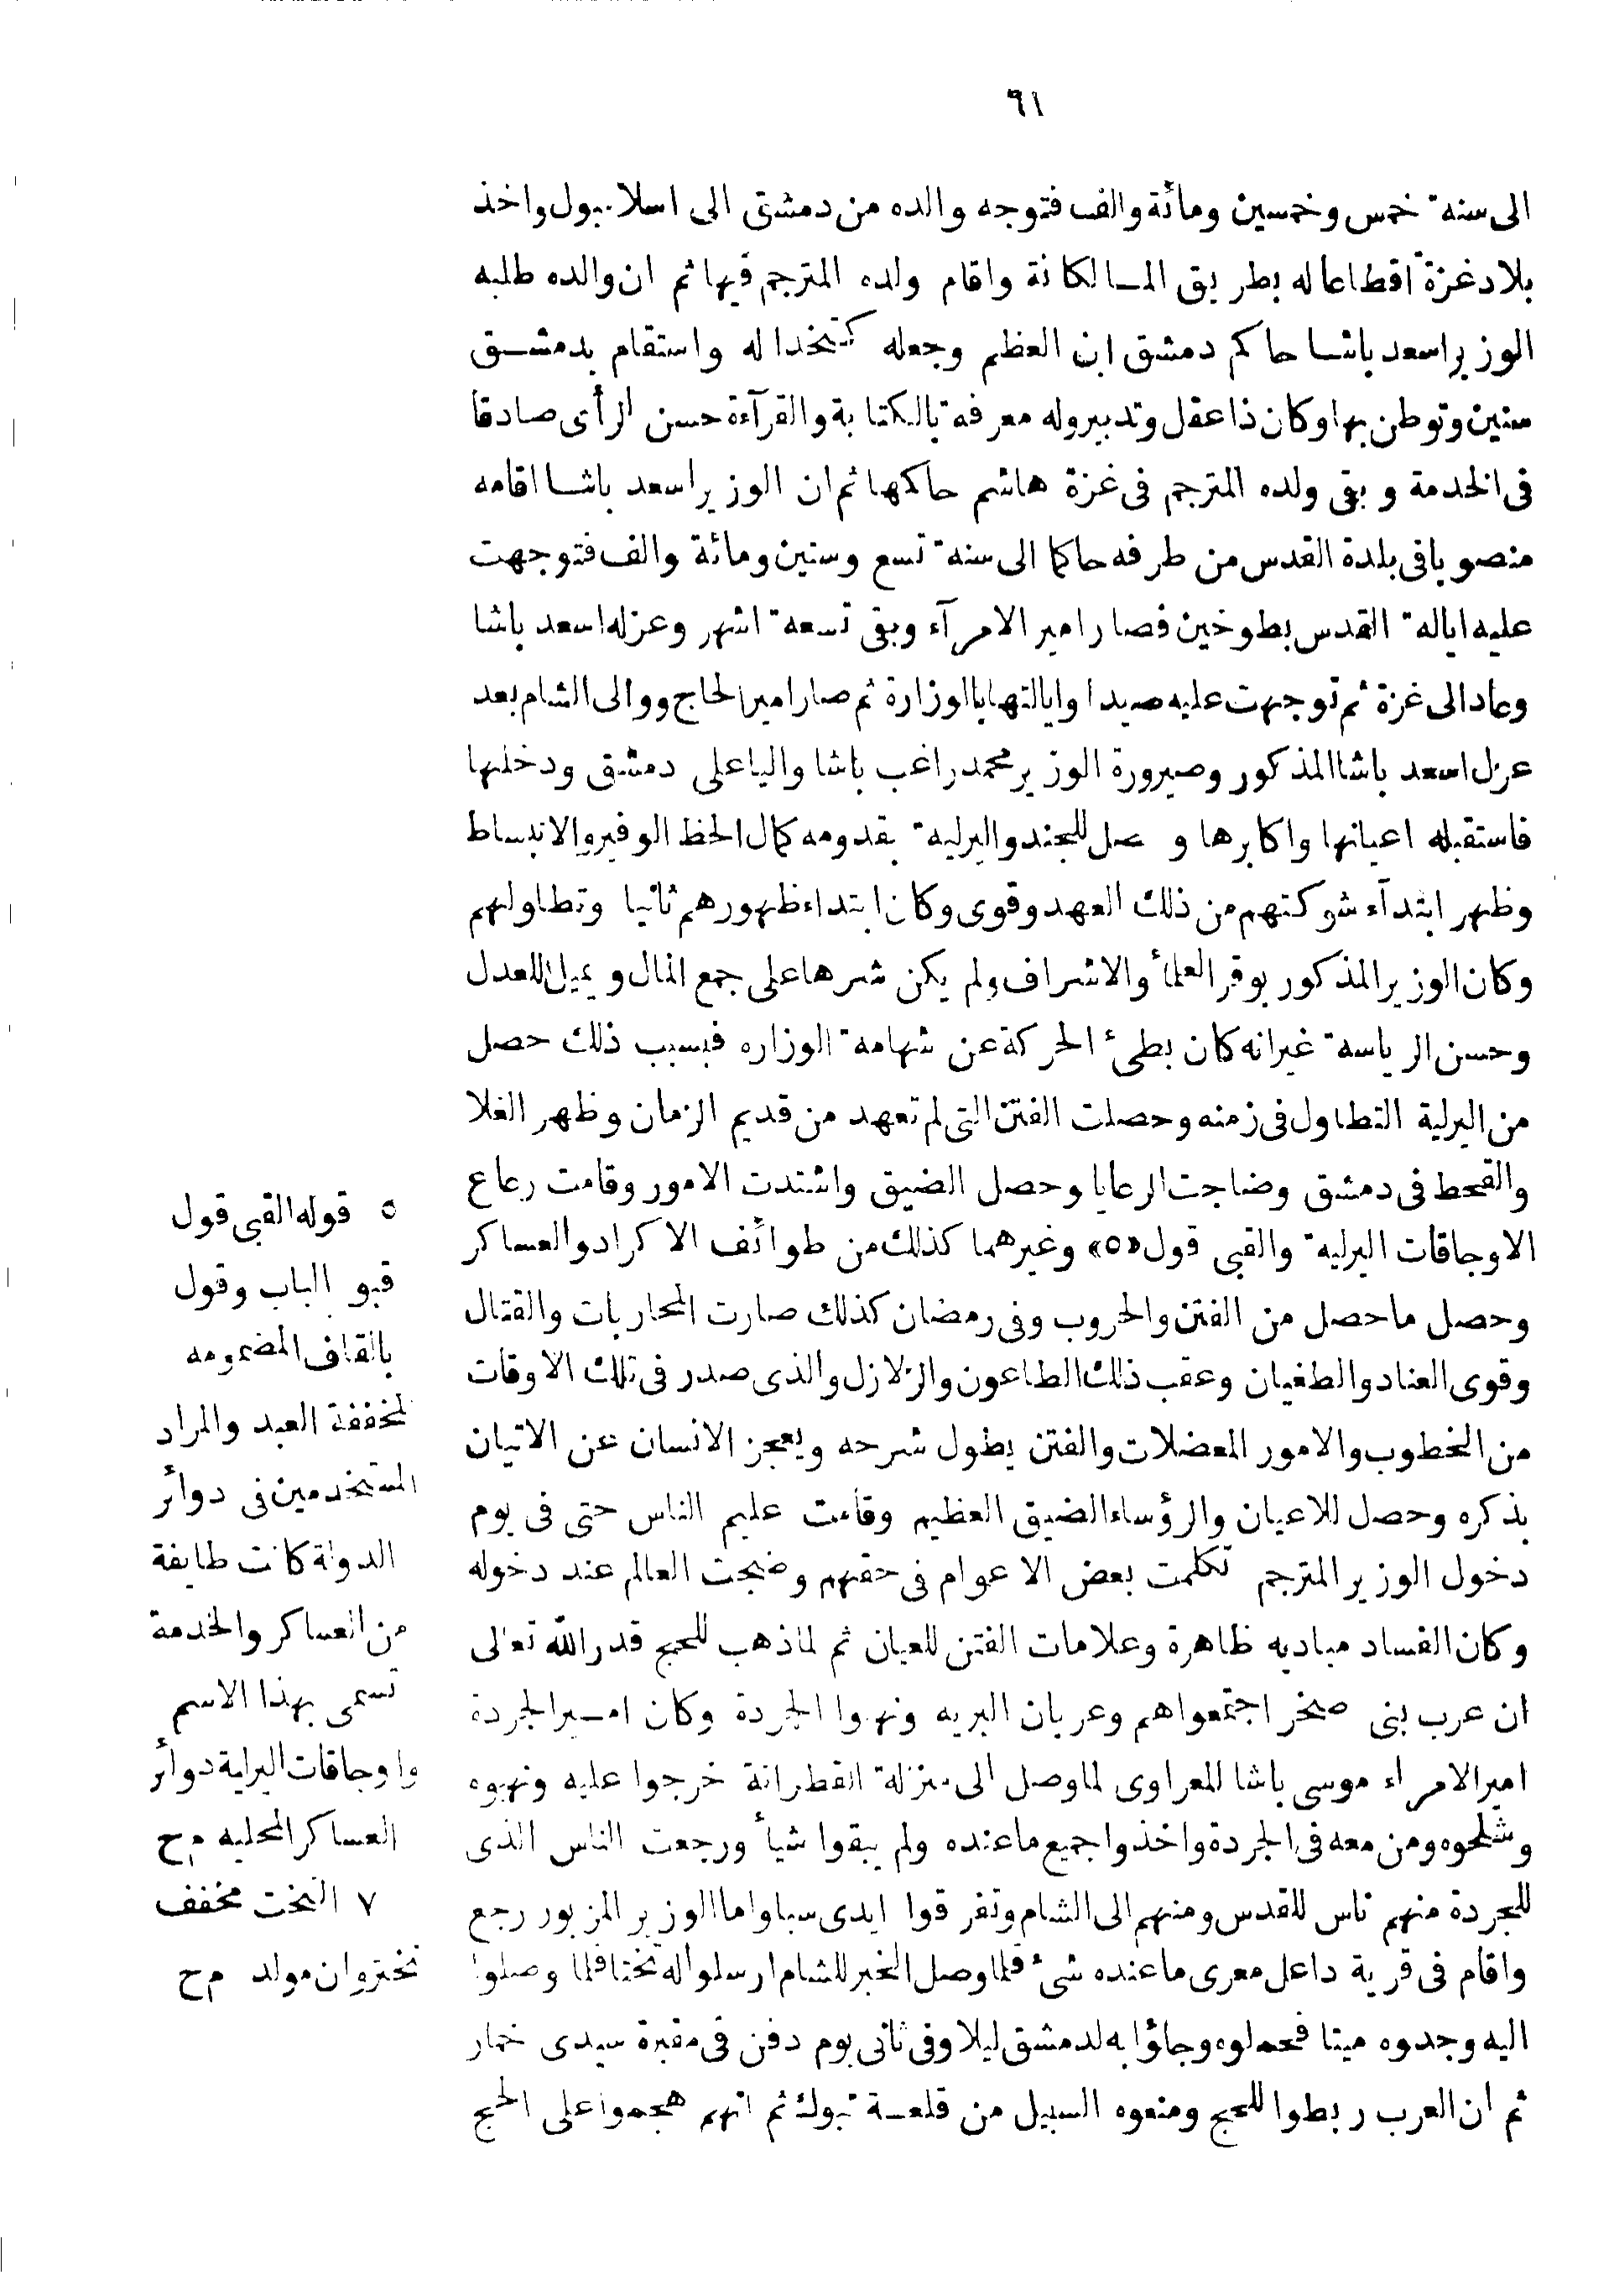 ٦١
الى سنة خمس وخمسين ومائة والف فتوجه والده من دمشق الى اسلامبول واخذ
بلاد غزة اقطاعا له بطريق المالكانة واقام ولده المترجم فيها ثم ان والده طلبه
الوزير اسعد باشا حاكم دمشق ابن العظم وجعله كتخدا له واستقام بدمشق
سنين وتوطن بها وكان ذا عقل وتدبير وله معرفة بالكتابة والقرآءة حسن الرأى صادقا
فى الخدمة وبقى ولده المترجم فى غزة هاشم حاكمها ثم ان الوزير اسعد باشا اقامه
منصوبا فى بلدة القدس من طرفه حاكما الى سنة تسع وستين ومائة والف فتوجهت
عليه ايالة القدس بطوخين فصار امير الامرآء وبقى تسعة اشهر وعزله اسعد باشا
وعاد الى غزة ثم توجهت عليه صيدا وايالتها بالوزارة ثم صار امير الحاج ووالى الشام بعد
عزل اسعد باشا المذكور وصيرورة الوزير محمد راغب باشا واليا على دمشق ودخلها
فاستقبله اعيانها واكابرها وحصل للجند والبرلية بقدومه كمال الحظ الوفير والانبساط
وظهر ابتدآء شوكتهم من ذلك العهد وقوى وكان ابتداء ظهورهم ثانيا وتطاولهم
وكان الوزير المذكور يوقر العلمأ والاشراف ولم يكن شرها على جمع المال ويميل للعدل
وحسن الرياسة غير انه كان بطئ الحركة عن شهامة الوزاره فبسبب ذلك حصل
من البرلية التطاول فى زمنه وحصلت الفتن التى لم تعهد من قديم الزمان وظهر الغلا
والقحط فى دمشق وضاجت الرعايا وحصل الضيق واشتدت الامور وقامت رعاع
الاوجاقات البرلية والقبى قول «٥» وغيرهما كذلك من طوائف الاكراد والعساكر
وحصل ما حصل من الفتن والحروب وفى رمضان كذلك صارت المحاربات والقتال
وقوى العناد والطغيان وعقب ذلك الطاعون والزلازل والذى صدر فى تلك الاوقات
من الخطوب والامور المعضلات والفتن يطول شرحه ويعجز الانسان عن الاتيان
بذكره وحصل للاعيان والرؤساء الضيق العظيم وقامت عليم الناس حتى فى يوم
دخول الوزير المترجم تكلمت بعض الاعوام فى حقهم وضجت العالم عند دخوله
وكان الفساد مباديه ظاهرة وعلامات الفتن للعيان ثم لما ذهب للحج قدر الله تعالى
ان عرب بنى صخر اجتمعوا هم وعربان البريه ونهبوا الجردة وكان امير الجردة
امير الامراء موسى باشا المعراوى لما وصل الى منزلة القطرانة خرجوا عليه ونهبوه
وشلحوه ومن معه فى الجردة واخذوا جميع ما عنده ولم يبقوا شيأ ورجعت الناس الذى
للجردة منهم ناس للقدس ومنهم الى الشام وتفرقوا ايدى سبا واما الوزير المزبور رجع
واقام فى قرية داعل معرى ما عنده شئ فلما وصل الخبر للشام ارسلوا له تختا فلما وصلوا
اليه وجدوه ميتا فحملوه وجاؤا به لدمشق ليلا وفى ثانى يوم دفن فى مقبرة سيدى خمار
ثم ان العرب ربطوا للحج ومنعوه السبيل من قلعة تبوك ثم انهم هجموا على الحج
٥ قوله القبى قول
قبو الباب وقول
بالقاف المضمومه
المخففة العبد والمراد
المستخدمين فى دوائر
الدولة كانت طايفة
من العساكر والخدمة
تسمى بهذا الاسم
واوجاقات البراية دوائر
العساكر المحلية م ح
٧ التخت مخفف
تختروان مولد م ح